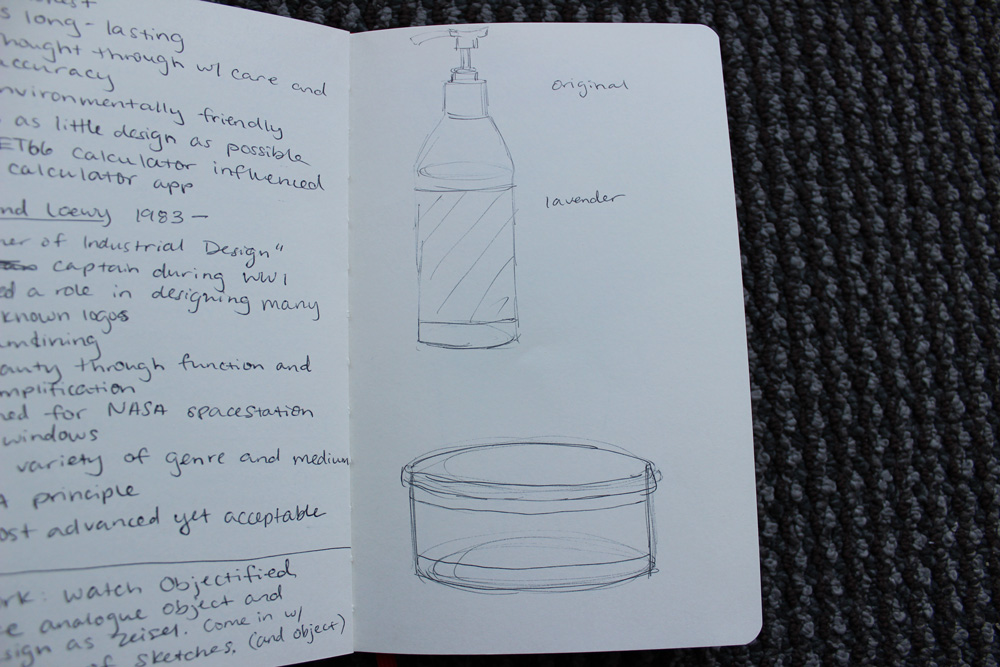 s long-lasting
thought through w/ care and
accuracy
nvironmentally friendly
as little design as possible
ET66 calculator influenced
calculator app
nd Loewy 1983 —
er of Industrial Design"
captain during WW1
ed a role in designing many
known logos
mlining
auty through function and
mplification
ned for NASA spacestation
windows
variety of genre and medium
A principle
ost advanced yet acceptable
rk: watch Objectified
e analogue object and
sign as Zeisel. Come in w/
of sketches. (and object)
original
lavender